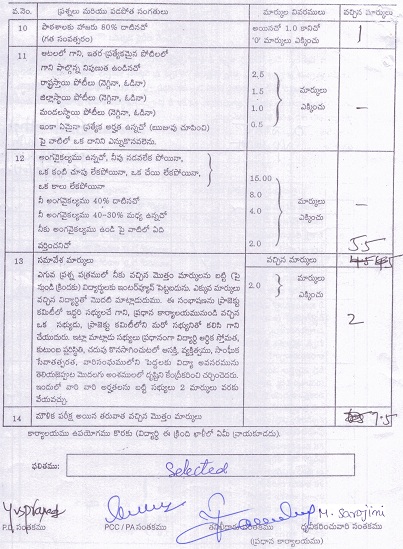 వ.నెం. ప్రశ్నలు మరియు పదపోత సంగతులు మార్కుల వివరములు వచ్చిన మార్కులు
10 పాఠశాలకు హాజరు 80% దాటినదో అయినచో 1.0 కానిచో 1
(గత సంవత్సరం) '0' మార్కులు ఎక్కించు
11 ఆటలలో గాని, ఇతర ప్రత్యేకమైన పోటీలలో
గాని పాల్గొన్న నిపుణత ఉండినచో
రాష్ట్రస్థాయి పోటీలు (నెగ్గినా, ఓడినా) 2.5 మార్కులు
జిల్లాస్థాయి పోటీలు (నెగ్గినా, ఓడినా) 1.5 ఎక్కించు –
మండలస్థాయి పోటీలు (నెగ్గినా, ఓడినా) 1.0
ఇంకా ఏమైనా ప్రత్యేక అర్హత ఉన్నచో (ఋజువు చూపించి) 0.5
పై వాటిలో ఒక దానిని ఎన్నుకొనవలెను.
12 అంగవైకల్యము ఉన్నచో, నీవు నడవలేక పోయినా,
ఒక కంటి చూపు లేకపోయినా, ఒక చేయి లేకపోయినా, 15.00
ఒక కాలు లేకపోయినా 8.0 మార్కులు
నీ అంగవైకల్యము 40% దాటినచో 4.0 ఎక్కించు –
నీ అంగవైకల్యము 40-30% మధ్య ఉన్నచో
నీకు అంగవైకల్యము ఉండి పై వాటిలో ఏది
వర్తించనిచో 2.0 5.5
13 సమావేశ మార్కులు వచ్చిన మార్కులు
ఎగువ ప్రశ్న పత్రములో నీకు వచ్చిన మొత్తం మార్కులను బట్టి (పై 2.0 మార్కులు
నుండి క్రిందకు) విద్యార్థులకు ఇంటర్వ్యూస్ పెట్టబడును. ఎక్కువ మార్కులు ఎక్కించు
వచ్చిన విద్యార్థితో మొదటి మాట్లాడుదుము. ఈ సంభాషణను ప్రాజెక్టు
కమిటీలో ఇద్దరి సభ్యులచే గాని, ప్రధాన కార్యాలయమునుండి వచ్చిన
ఒక సభ్యుడు, ప్రాజెక్టు కమిటీలోని మరో సభ్యునితో కలిసి గాని 2
చేయుదురు. ఇట్లా మాటాడు సభ్యులు ప్రధానంగా విద్యార్థి ఆర్థిక స్తోమత,
కుటుంబ ప్రరిస్థితి, చదువు కొనసాగించుటలో ఆసక్తి, వ్యక్తిత్వము, సాంఘిక
సేవాతత్పరత, వారినసంఘములోని పెద్దలకు విద్యా అవసరమును
తెలియజెప్పుట మొదలగు అంశములలో దృష్టిని కేంద్రీకరించి చర్చించెదరు.
ఇందులో వారి వారి అర్హతలను బట్టి సభ్యులు 2 మార్కులు వరకు
వేయవచ్చు.
14 మౌళిక పరీక్ష అయిన తరువాత వచ్చిన మొత్తం మార్కులు 7.5
కార్యాలయము ఉపయోగము కొరకు (విద్యార్థి ఈ క్రింది ఖాళీలో ఏమీ వ్రాయకూడదు).
ఫలితము: Selected
M. Sarojini
P.D. సంతకము PCC / PA సంతకము ధృవీకరించువారి సంతకము
(ప్రధాన కార్యాలయము)